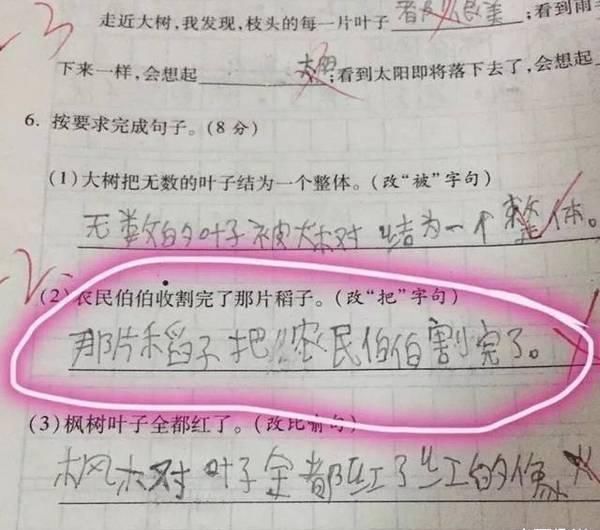 -3
走近大树,我发现,枝头的每一片叶子 都很美;看到雨
下来一样,会想起 太阳;看到太阳即将落下去了,会想起
6. 按要求完成句子。(8 分)
(1)大树把无数的叶子结为一个整体。(改“被”字句)
无数的叶子被大树结为一个整体。
-2
(2)农民伯伯收割完了那片稻子。(改“把”字句)
那片稻子把农民伯伯割完了。
(3)枫树叶子全都红了。(改比喻句)
枫树叶子全都红了红的像